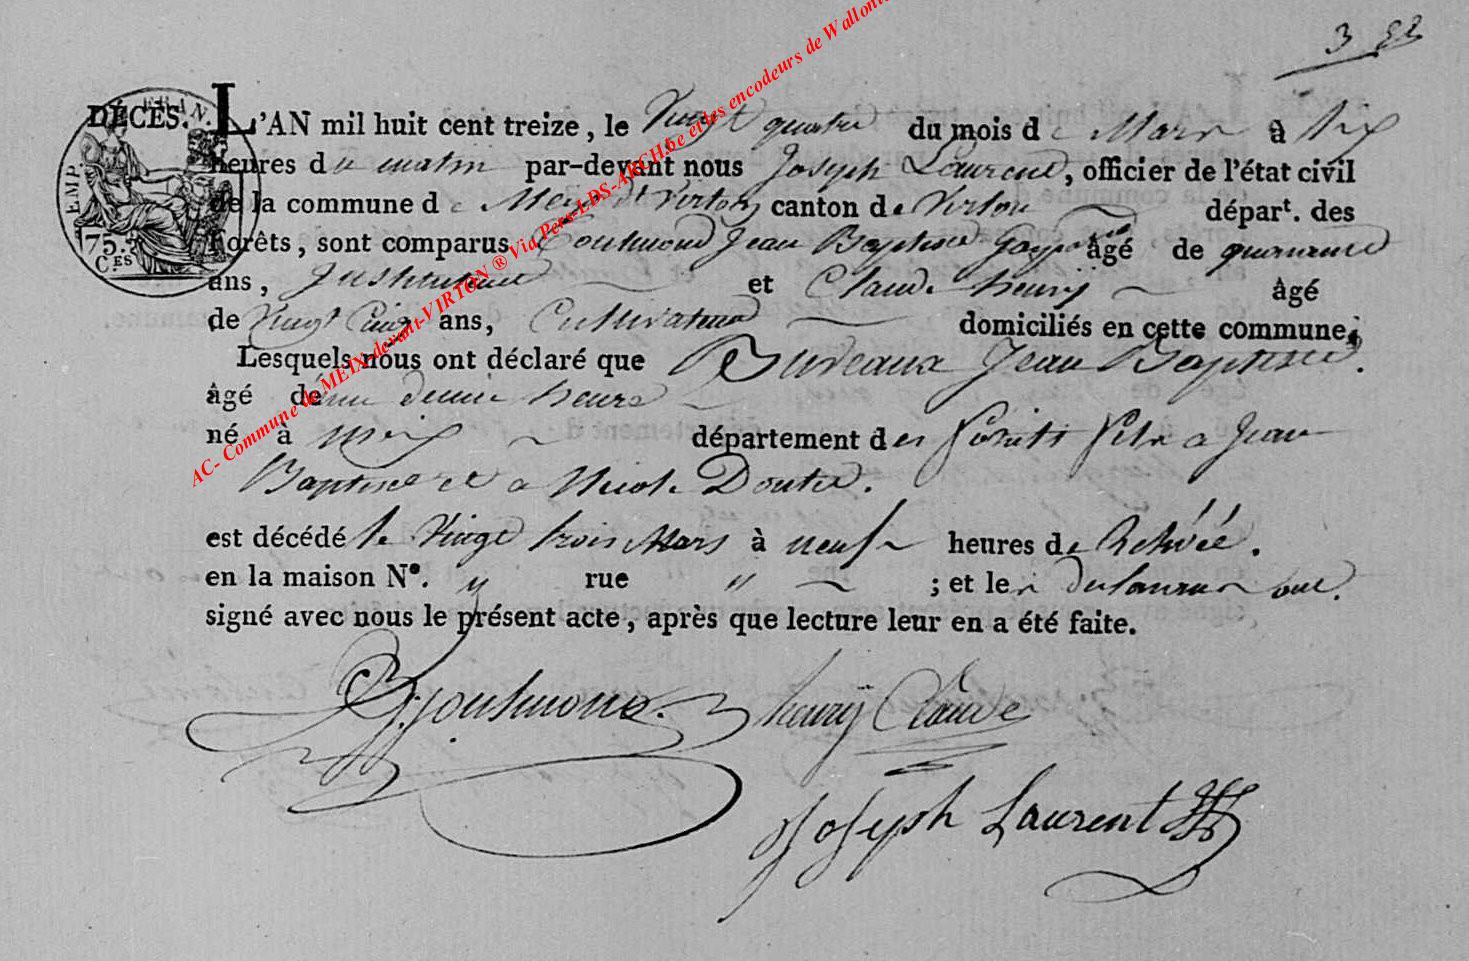 3
EMP. FRAN.
75. C.ES
DÉCÈS. L'AN mil huit cent treize, le Vingt quatre du mois de Mars à Six
heures du matin par-devant nous Joseph Laurent, officier de l'état civil
de la commune de Meix dt Virton canton de Virton départ. des
Forêts, sont comparus Goutmond Jean Baptiste âgé de quarante
ans, Instituteur et Claude henrÿ âgé
de Vingt Cinq ans, Cultivateur domiciliés en cette commune;
Lesquels nous ont déclaré que Bureaux Jean Baptiste.
âgé de une demie heure
né à Meix département des forêts fils a Jean
Baptiste et a Nicole Doutre.
est décédé le Vingt trois Mars à neuf heures de Relevée.
en la maison N°. " rue " ; et les declarans ont
signé avec nous le présent acte, après que lecture leur en a été faite.
henrÿ Claude
Joseph Laurent
AC- Commune de MEIX-devant-VIRTON ® Via Pers-LDS-ARCH.be et les encodeurs de Wallonie